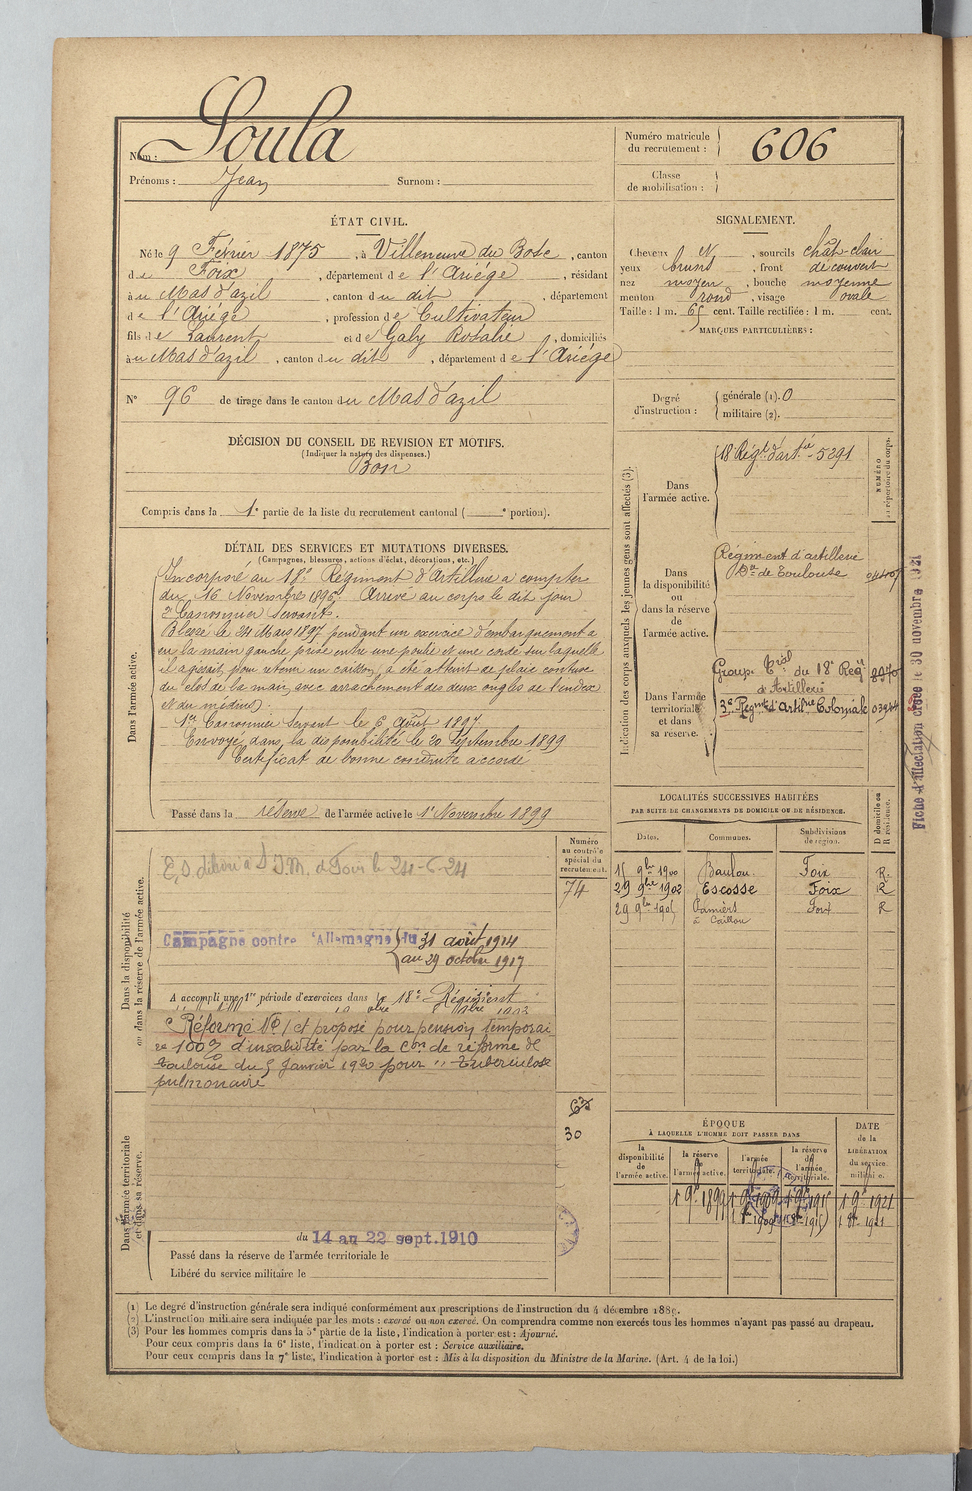 Nom : Soula
Prénoms : Jean Surnom :
Numéro matricule
du recrutement : 606
Classe
de mobilisation :
ÉTAT CIVIL.
Né le 9 Février 1875, à Villeneuve du Bosc, canton
de Foix, département de l'Ariége, résidant
à u Mas d'azil, canton du dit, département
de l'Ariége, profession de Cultivateur
fils de Laurent et de Galy Rosalie, domiciliés
à u Mas d'azil, canton du dit, département de l'Ariége
N° 96 de tirage dans le canton du Mas d'azil
SIGNALEMENT.
Cheveux et, sourcils chât-clair
yeux bruns, front découvert
nez moyen, bouche moyenne
menton rond, visage ovale
Taille : 1 m. 65 cent. Taille rectifiée : 1 m. cent.
MARQUES PARTICULIÈRES :
Degré
d'instruction :
générale (1). 0
militaire (2).
DÉCISION DU CONSEIL DE REVISION ET MOTIFS.
(Indiquer la nature des dispenses.)
Bon
Compris dans la 1e partie de la liste du recrutement cantonal ( e portion).
DÉTAIL DES SERVICES ET MUTATIONS DIVERSES.
(Campagnes, blessures, actions d'éclat, décorations, etc.)
Dans l'armée active.
Incorporé au 18e Régiment d'Artillerie à compter
du 16 Novembre 1896. Arrivé au corps le dit jour
2e Canonnier Servant.
Blessé le 24 Mars 1897 pendant un exercice d'embarquement a
eu la main gauche prise entre une poulie et une corde sur laquelle
il agissait pour retenir un caisson, a été atteint de plaie contuse
du dos de la main, avec arrachement des deux ongles de l'index
et du médius).
1er Canonnier Servant le 6 Août 1897
Envoyé dans la disponibilité le 20 Septembre 1899
Certificat de bonne conduite accordé
Passé dans la réserve de l'armée active le 1er Novembre 1899
Indication des corps auxquels les jeunes gens sont affectés (3).
NUMÉRO
au répertoire du corps.
Dans
l'armée active.
18e Régt d'artie - 5291
Dans
la disponibilité
ou
dans la réserve
de
l'armée active.
Régiment d'artillerie
Don de Toulouse
Dans l'armée
territoriale
et dans
sa réserve.
Groupe Trial du 18e Régt
d'Artillerie
3e Regmt d'Artilrie Coloniale 03944
Fiche d'affectation créée le 30 novembre 1921
LOCALITÉS SUCCESSIVES HABITÉES
PAR SUITE DE CHANGEMENTS DE DOMICILE OU DE RÉSIDENCE.
Dates. Communes. Subdivisions de région. D domicile ou R résidence.
15 9bre 1900 Baulou Foix R.
29 9bre 1902 Escosse Foix R
29 9bre 1905 Pamiers Foix R
Dans la disponibilité
ou dans la réserve de l'armée active.
Numéro
au contrôle
spécial du
recrutement.
74
Campagne contre l'Allemagne du 31 août 1914
au 29 octobre 1917
A accompli une 1re période d'exercices dans le 18e Régiment
Réformé N° 1 et proposé pour pension temporai
re 100% d'invalidité par la Con de réforme de
Toulouse du 5 Janvier 1920 pour " Tuberculose
pulmonaire
Dans l'armée territoriale
et dans sa réserve.
63
30
du 14 au 22 sept. 1910
Passé dans la réserve de l'armée territoriale le
Libéré du service militaire le
ÉPOQUE
À LAQUELLE L'HOMME DOIT PASSER DANS
la
disponibilité
de
l'armée active.
la réserve
de
l'armée active.
l'armée
territoriale.
la réserve
de
l'armée
territoriale.
DATE
de la
LIBÉRATION
du service
militaire.
1 9e 1899 1 9e 1909 1 9e 1915 1 9e 1921
1 8re 1909 1 8re 1915 1 8re 1921
(1) Le degré d'instruction générale sera indiqué conformément aux prescriptions de l'instruction du 4 décembre 1889.
(2) L'instruction militaire sera indiquée par les mots : exercé ou non exercé. On comprendra comme non exercés tous les hommes n'ayant pas passé au drapeau.
(3) Pour les hommes compris dans la 5e partie de la liste, l'indication à porter est : Ajourné.
Pour ceux compris dans la 6e liste, l'indication à porter est : Service auxiliaire.
Pour ceux compris dans la 7e liste, l'indication à porter est : Mis à la disposition du Ministre de la Marine. (Art. 4 de la loi.)